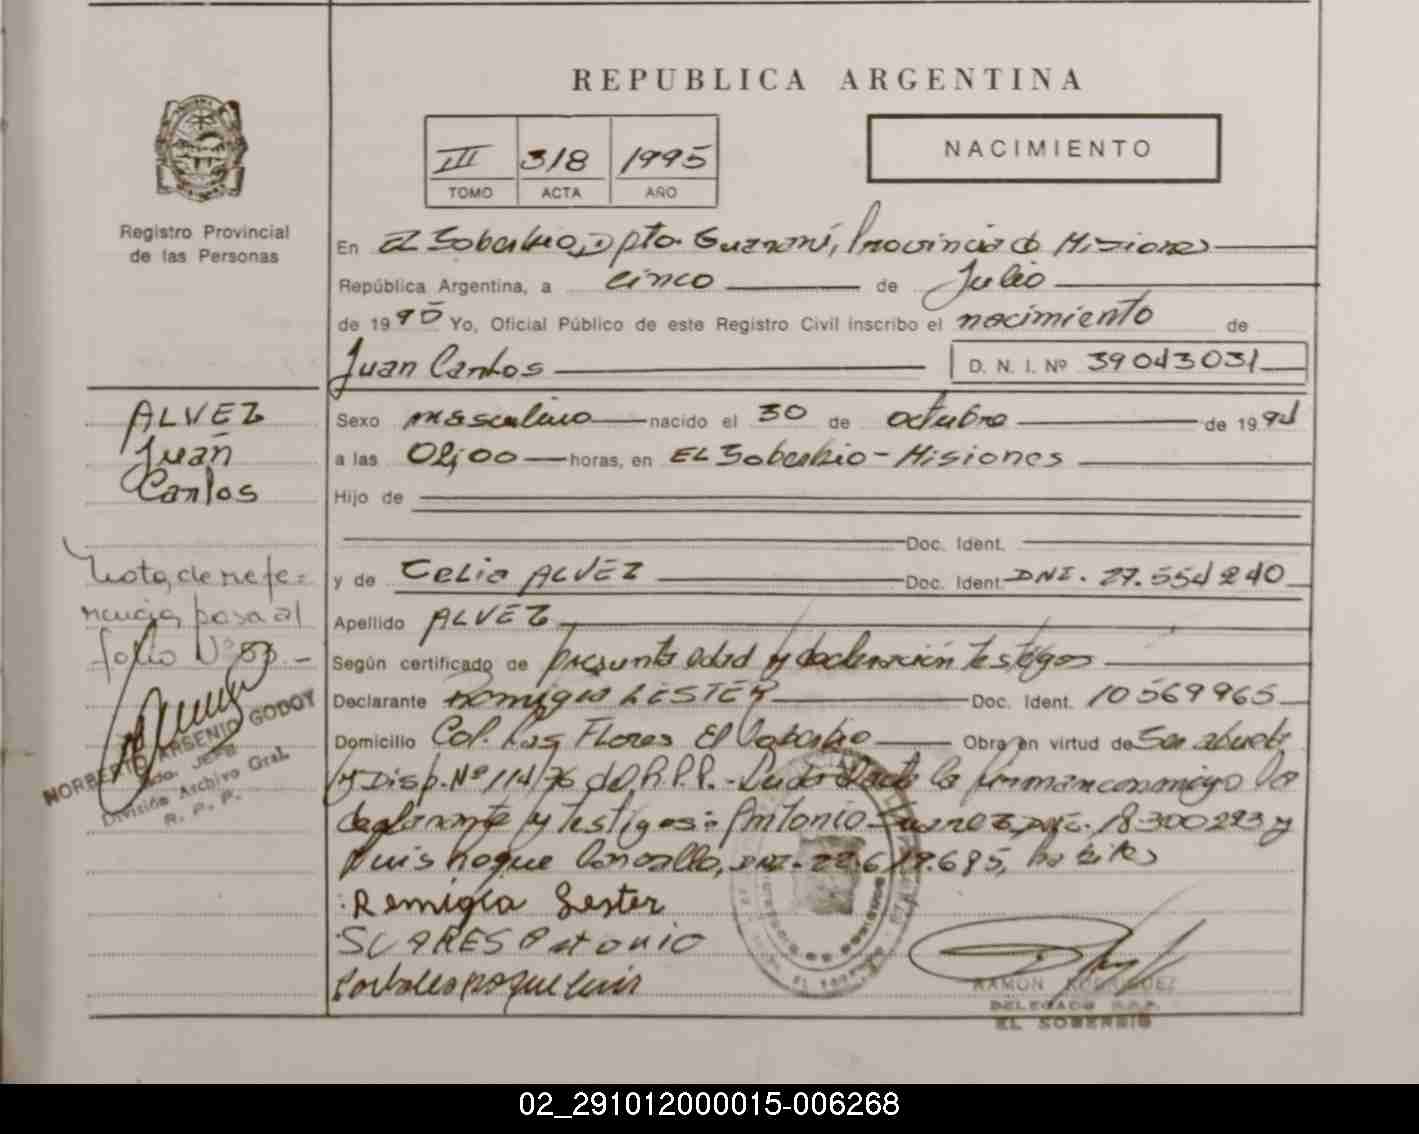 REPUBLICA ARGENTINA
III 318 1995
TOMO ACTA AÑO
NACIMIENTO
Registro Provincial
de las Personas
En El Soberbio, Dpto. Guaraní, Provincia de Misiones
República Argentina, a cinco de Julio
de 1995 Yo, Oficial Público de este Registro Civil inscribo el nacimiento de
Juan Carlos D. N. I. Nº 39043031
ALVEZ
Juan
Carlos
Sexo masculino nacido el 30 de octubre de 1994
a las 02,00 horas, en EL Soberbio - Misiones
Hijo de
Doc. Ident.
y de Celia ALVEZ Doc. Ident. DNI. 27.554240
Apellido ALVEZ
Nota de refe=
rencia pasa al
folio Nº
NORBERTO ARSENIO GODOY
JEFE
División Archivo Gral.
R. P. P.
Según certificado de presunta edad y declaración testigos
Declarante Remigia LESTER Doc. Ident. 10569965
Domicilio Col. Las Flores El Soberbio Obra en virtud de Ser abuela
y Disp. Nº 114/76 del R.P.P.- Leida acta la firman conmigo la
declarante y testigos: Antonio 18300293 y
Luis Roque DNI. 685, hábiles
Remigia Lester
SUARES Antonio
Roque Luis
RAMON RODRIGUEZ
DELEGADO R.P.P.
EL SOBERBIO
02_291012000015-006268